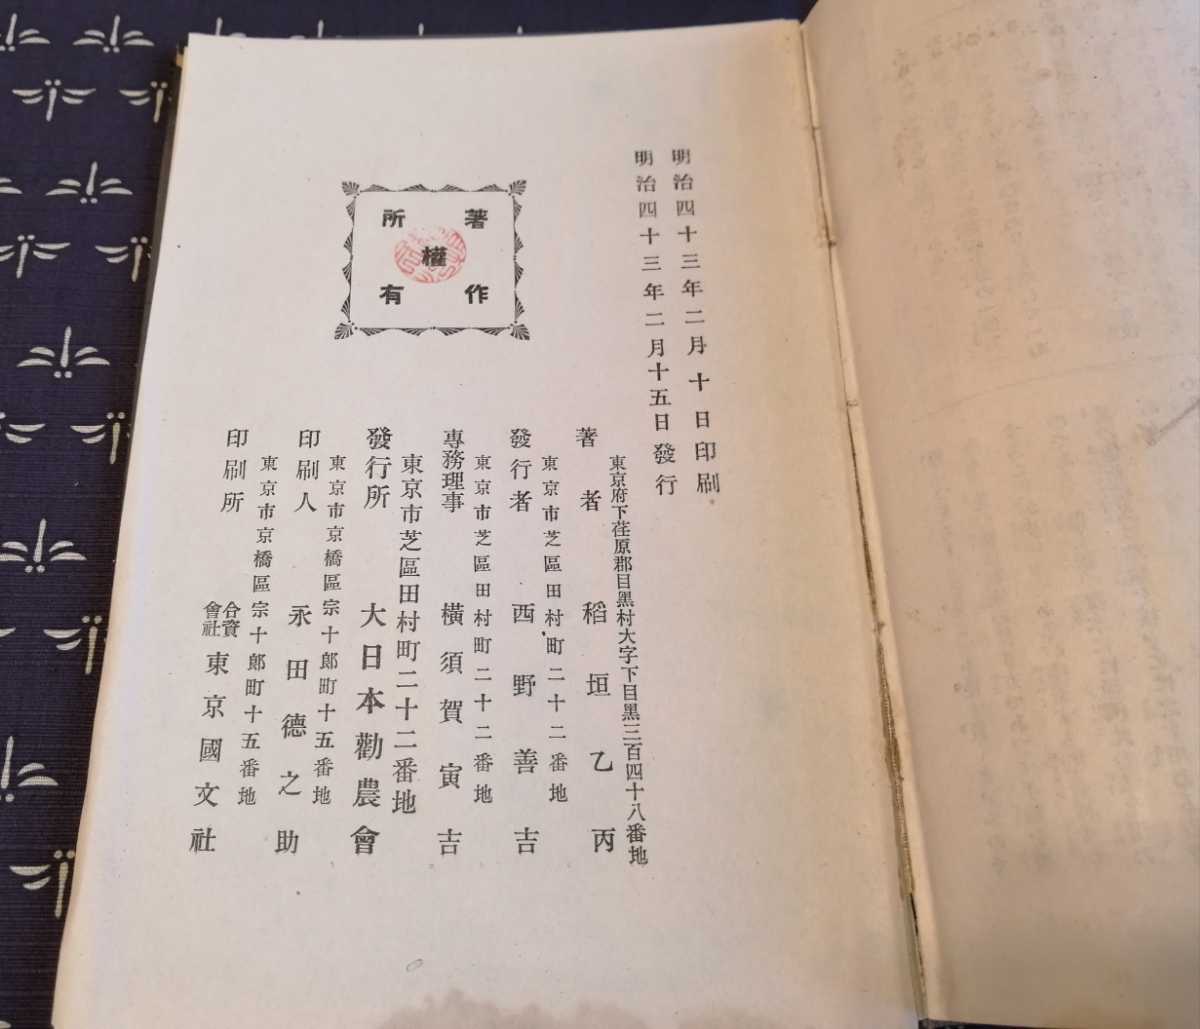 明治四十三年二月十日印刷
明治四十三年二月十五日發行
著作權所有
東京府下荏原郡目黑村大字下目黑三百四十八番地
著者 稻垣乙丙
東京市芝區田村町二十二番地
發行者 西野善吉
東京市芝區田村町二十二番地
專務理事 橫須賀寅吉
東京市芝區田村町二十二番地
發行所 大日本勸農會
東京市京橋區宗十郞町十五番地
印刷人 永田德之助
東京市京橋區宗十郞町十五番地
印刷所 合資會社 東京國文社